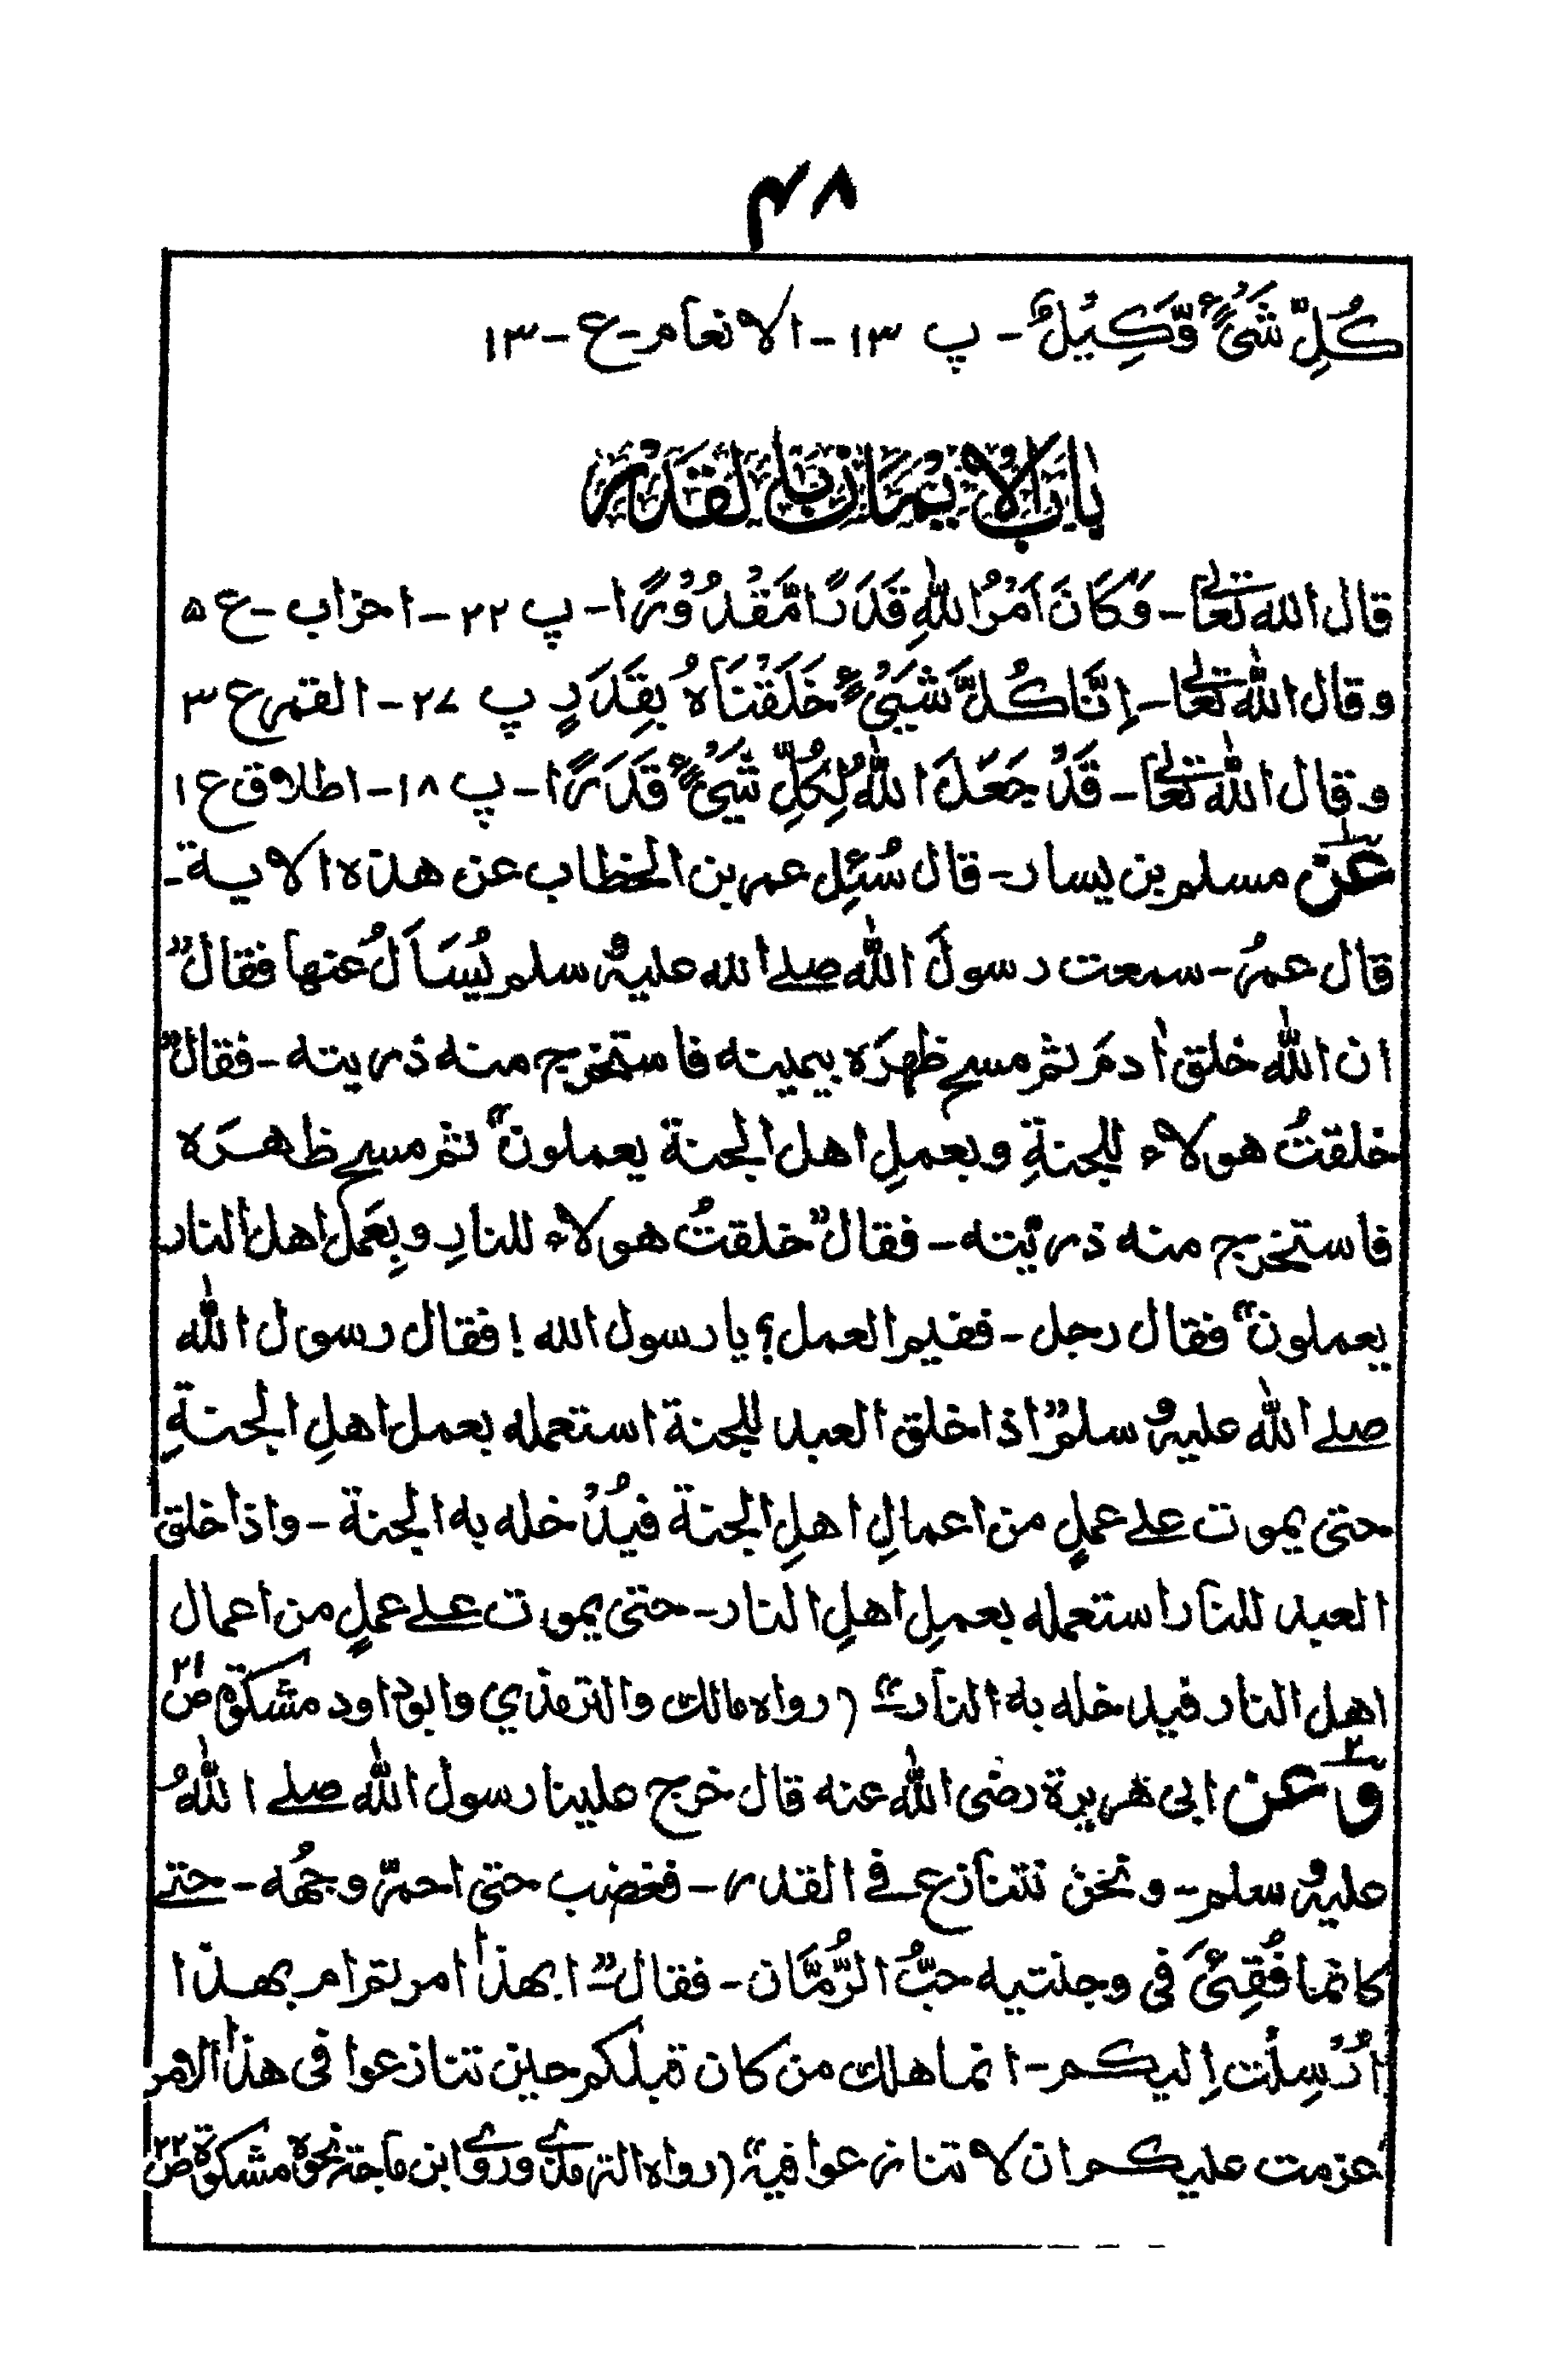 ۴۸
كُلِّ شَيْءٍ وَّكِيْلٌ - پ ۱۳ - الانعام - ع - ۱۳
باب الایمان بالقدر
قال الله تعالیٰ - وَكَانَ اَمْرُ اللهِ قَدَرًا مَّقْدُوْرًا - پ ۲۲ - احزاب - ع ۵
وقال الله تعالیٰ - اِنَّا كُلَّ شَيْءٍ خَلَقْنَاهُ بِقَدَرٍ پ ۲۷ - القمر ع ۳
وقال الله تعالیٰ - قَدْ جَعَلَ اللهُ لِكُلِّ شَيْءٍ قَدَرًا - پ ۱۸ - اطلاق ع ۱
عن مسلم بن یسار - قال سُئِل عمر بن الخطاب عن هذه الاية -
قال عمرُ - سمعت رسولَ الله صلے الله علیہ وسلم يُسَاَلُ عنها فقال "
ان الله خلق اٰدمَ ثم مسح ظهرَه بيمينه فاستخرج منه ذريته - فقال "
خلقتُ هولاء للجنةِ وبعملِ اهل الجنة يعملون" ثم مسح ظهرَه
فاستخرج منه ذريّته - فقال "خلقتُ هولاء للنارِ وبِعَمل اهل النار
يعملون" فقال رجل - ففيم العمل؟ يا رسول الله ! فقال رسول الله
صلے الله علیہ وسلم "اذا خلق العبد للجنة استعمله بعمل اهلِ الجنةِ
حتى يموت علے عملٍ من اعمالِ اهلِ الجنة فيُدْخله به الجنة - واذا خلق
العبد للنار استعمله بعملِ اهلِ النار - حتى يموت علے عملٍ من اعمال
اهل النار فيدخله به النار" (رواه مالك والترمذي وابوداود مشكوة ص ۲۱
۲ وعن ابى هريرة رضى الله عنه قال خرج علينا رسول الله صلے اللهُ
علیہ وسلم - ونحن نتنازع فے القدر - فغضب حتى احمرّ وجهُه - حتے
كانما فُقِئَ فى وجنتيه حبُّ الرُّمَّان - فقال " ابهذا امرتم ام بهذا
اُرْسِلْت اِليكم - انما هلك من كان قبلكم حين تنازعوا فى هذا الامر
عزمت عليكم ان لا تنازعوا فيه" (رواه الترمذے وروے ابن ماجة نحوه مشكوة ص ۲۲